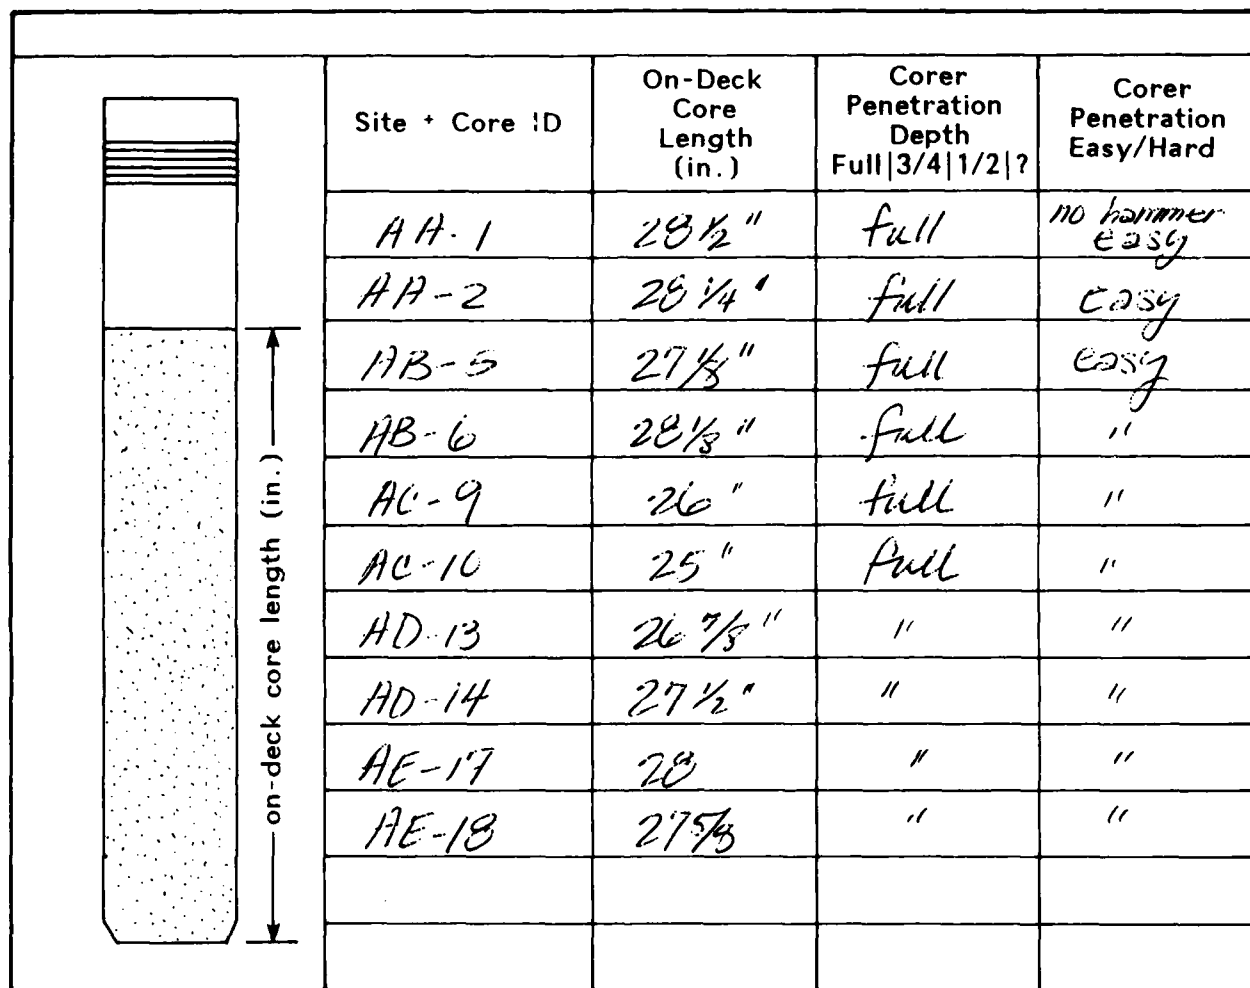 Site + Core ID
On-Deck
Core
Length
(in.)
Corer
Penetration
Depth
Full|3/4|1/2|?
Corer
Penetration
Easy/Hard
AA-1 28 1/2" full no hammer
easy
AA-2 28 1/4" full easy
AB-5 27 1/8" full easy
AB-6 28 1/8" full "
AC-9 26" full "
AC-10 25" full "
AD-13 26 7/8" " "
AD-14 27 1/2" " "
AE-17 28 " "
AE-18 27 5/8 " "
on-deck core length (in.)